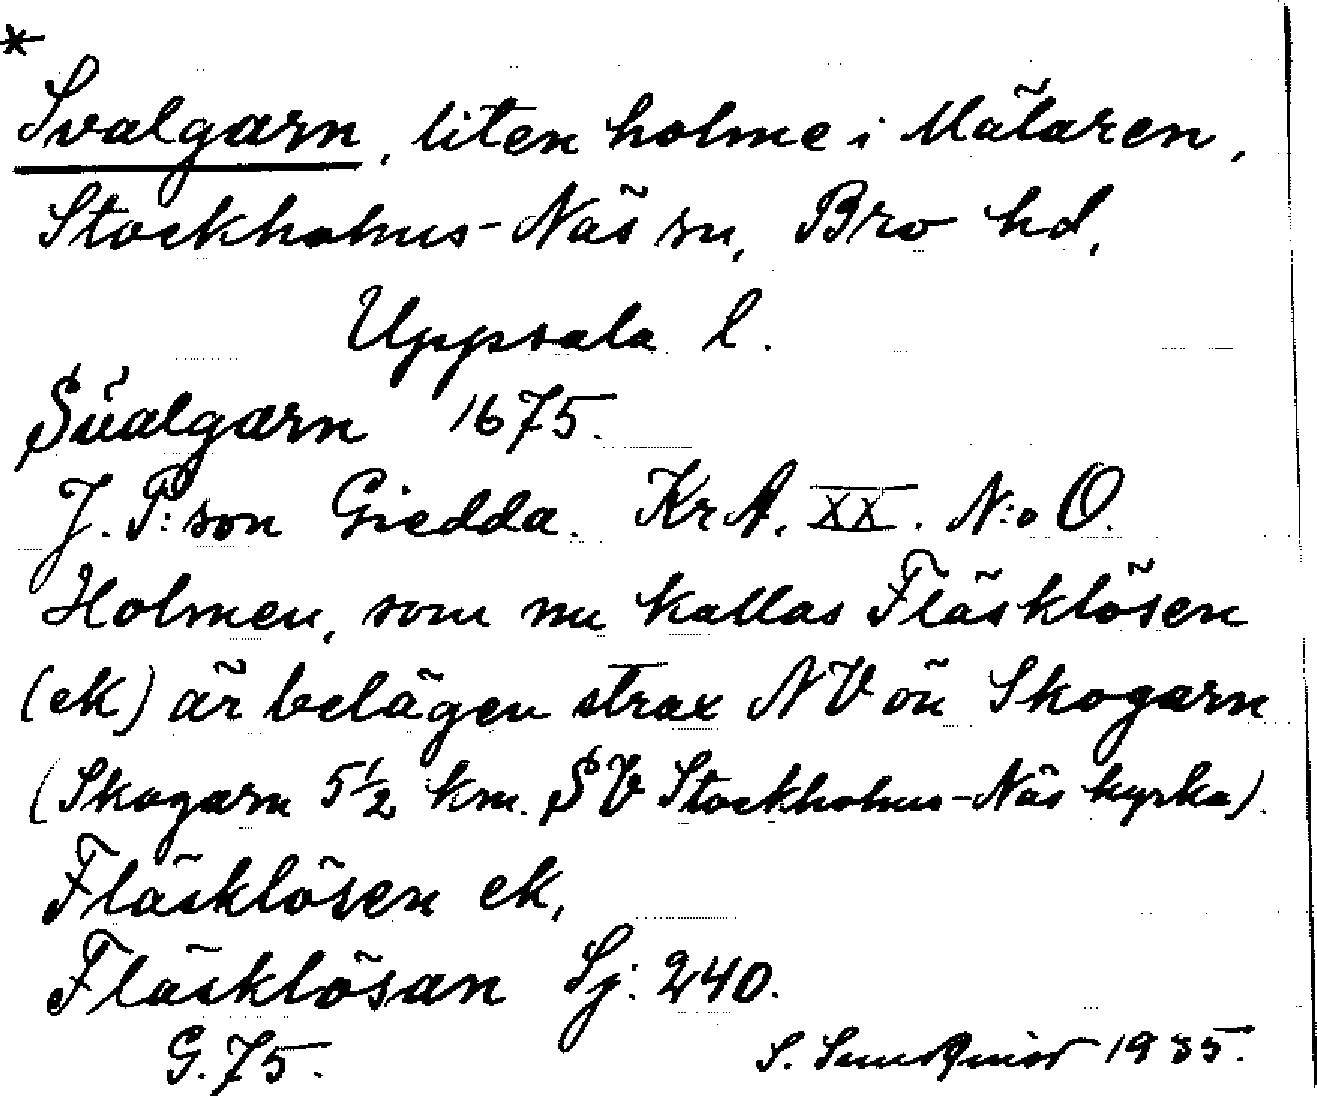 *
Svalgarn, liten holme i Mälaren,
Stockholms-Näs sn, Bro hd,
Uppsala l.
Sŭalgarn 1675.
J. P:son Giedda. KrA. XX. N:o O.
Holmen, som nu kallas Fläsklösen
(ek) är belägen strax NV ön Skogarn
(Skogarn 5½ km. SV Stockholms-Näs kyrka).
Fläsklösen ek,
Fläsklösan Sj: 240.
G. 75. S. Sundqvist 1935.